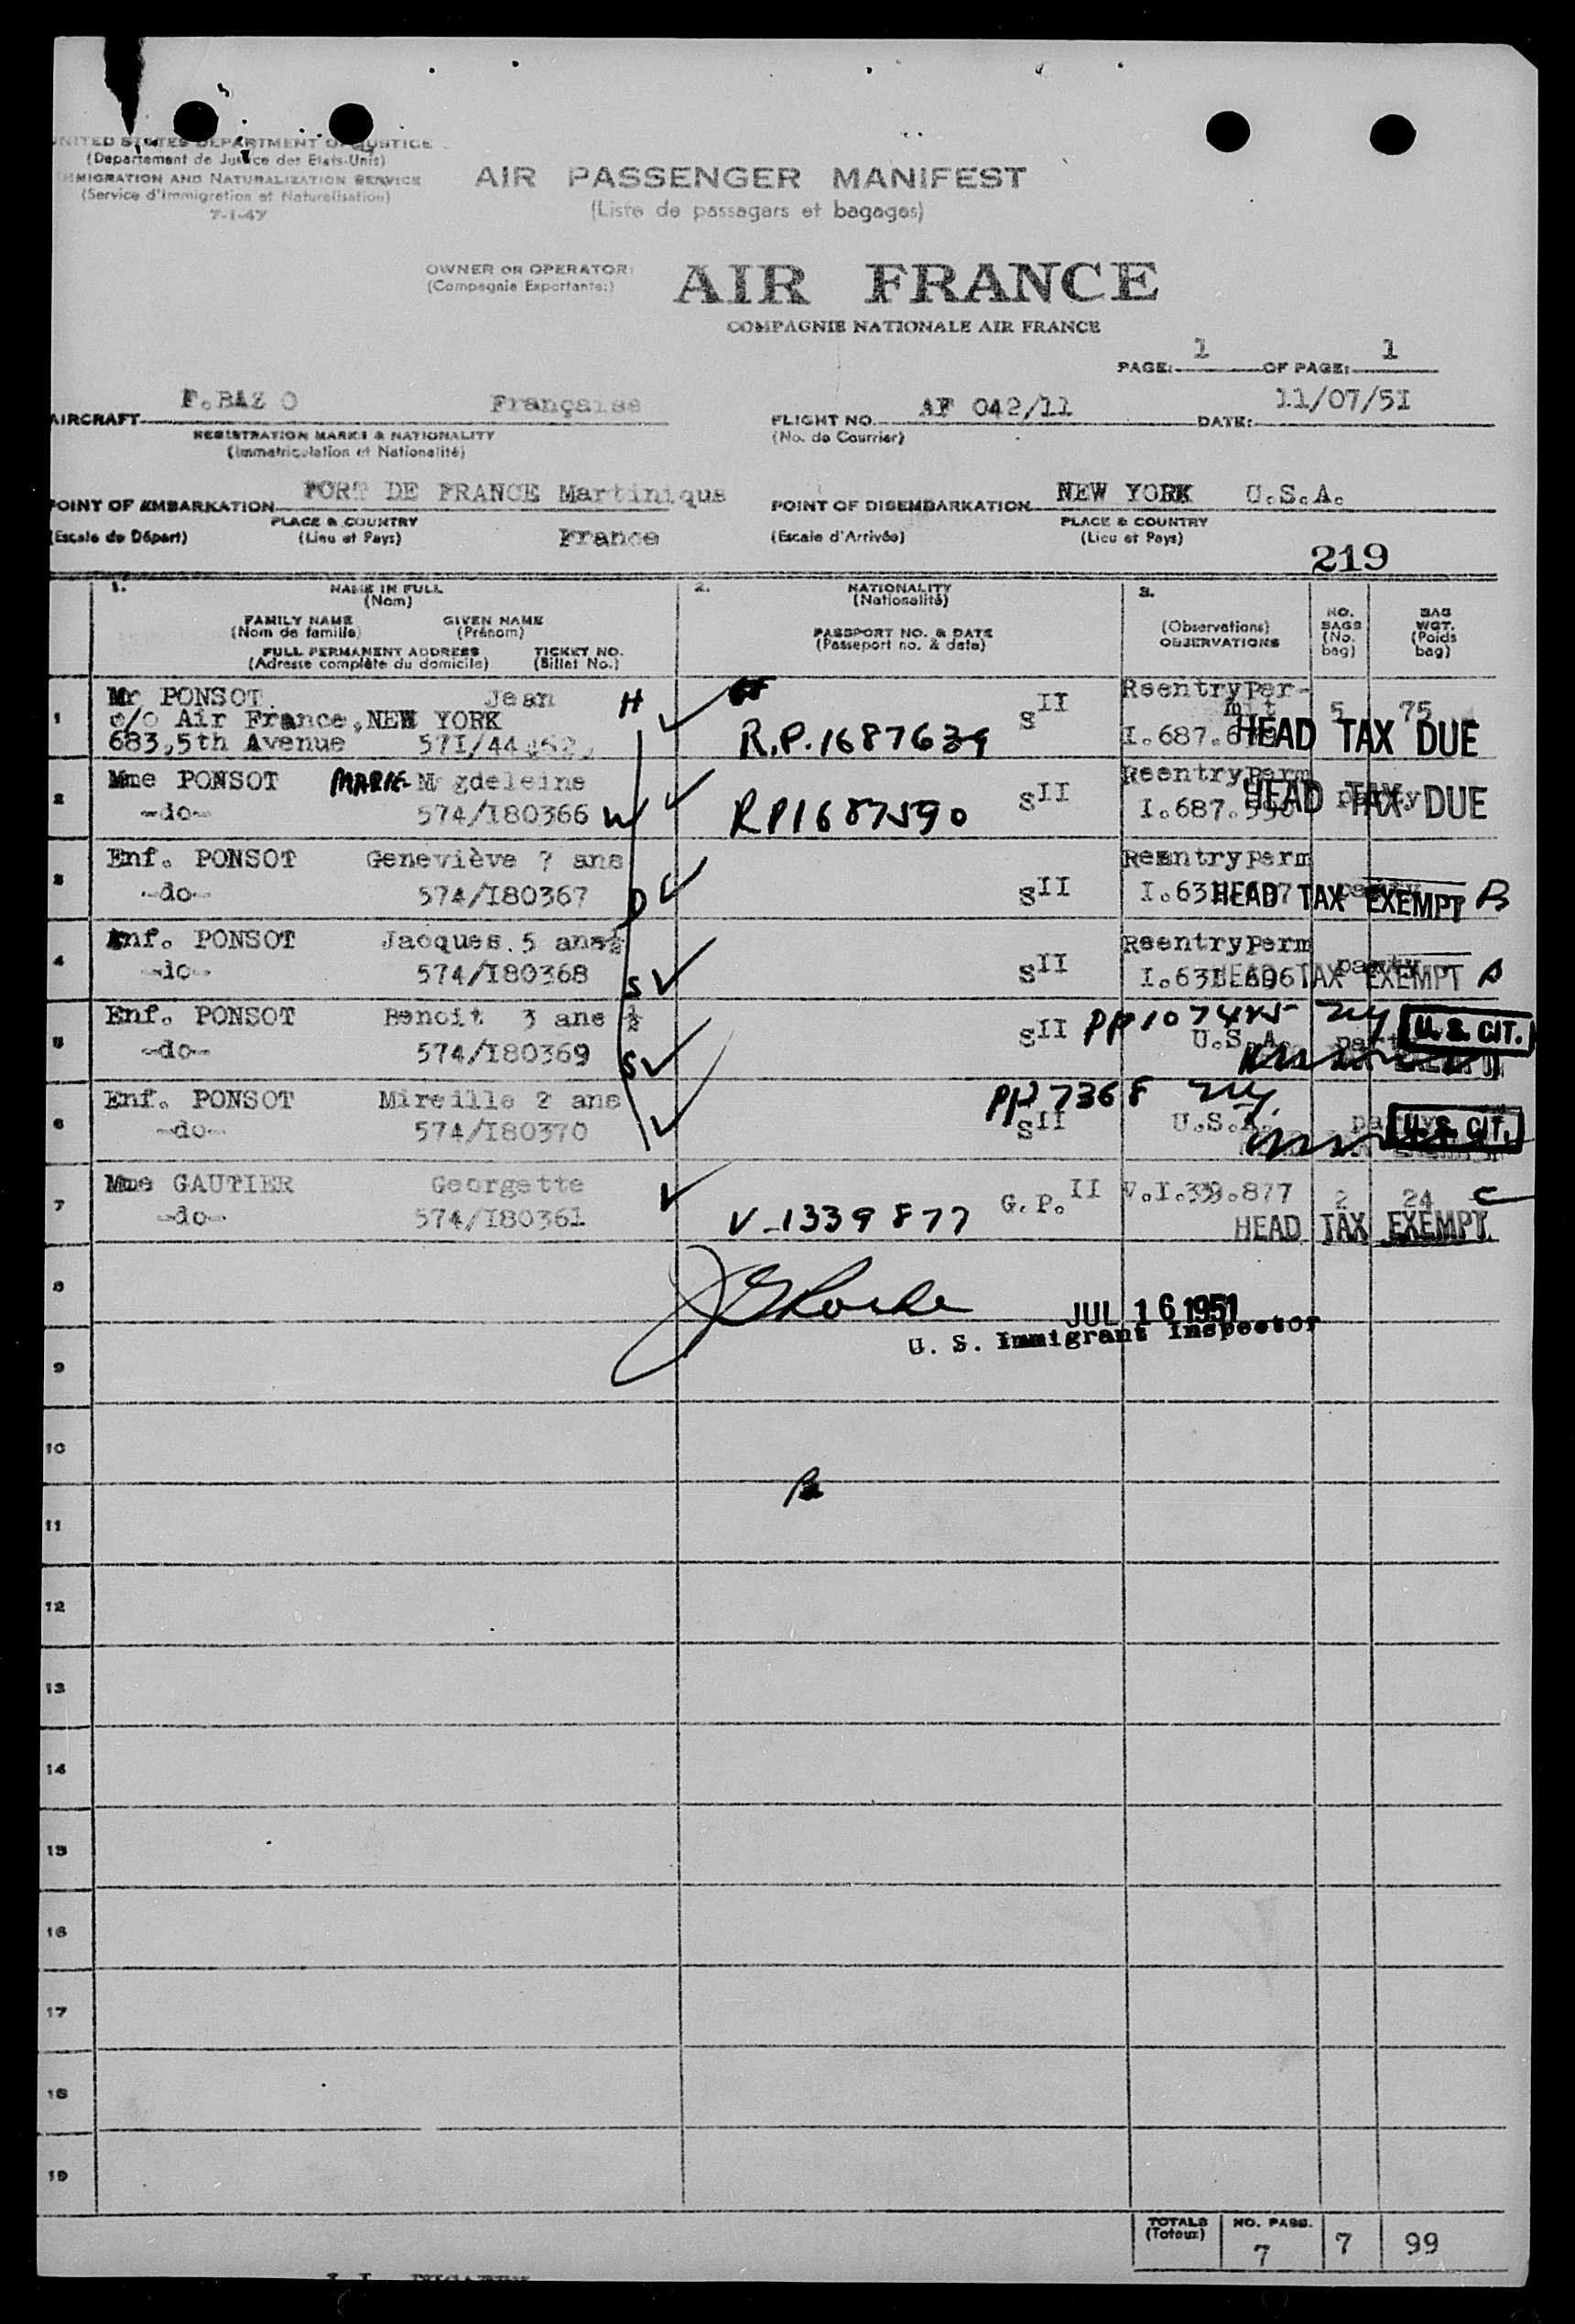 UNITED STATES DEPARTMENT OF JUSTICE
(Departement de Justice des Etats-Unis)
IMMIGRATION AND NATURALIZATION SERVICE
(Service d'Immigration et Naturalisation)
7-1-47
AIR PASSENGER MANIFEST
(Liste de passagers et bagages)
OWNER OR OPERATOR:
(Compagnie Exportante:)
AIR FRANCE
COMPAGNIE NATIONALE AIR FRANCE
PAGE: 1 OF PAGE: 1
AIRCRAFT F.BAZ O Française
REGISTRATION MARKS & NATIONALITY
(Immatriculation et Nationalité)
FLIGHT NO. AF 042/11 DATE: 11/07/51
(No. de Courrier)
POINT OF EMBARKATION FORT DE FRANCE Martinique
PLACE & COUNTRY
(Escale de Départ) (Lieu et Pays) France
POINT OF DISEMBARKATION NEW YORK U.S.A.
PLACE & COUNTRY
(Escale d'Arrivée) (Lieu et Pays)
219
1. NAME IN FULL
(Nom)
FAMILY NAME GIVEN NAME
(Nom de famille) (Prénom)
FULL PERMANENT ADDRESS TICKET NO.
(Adresse complète du domicile) (Billet No.)
2. NATIONALITY
(Nationalité)
PASSPORT NO. & DATE
(Passeport no. & date)
3.
(Observations)
OBSERVATIONS
NO. BAGS (No. bag)
BAG WGT. (Poids bag)
1 Mr PONSOT Jean H
c/o Air France, NEW YORK
683,5th Avenue
R.P. 1687639 S II
Reentry Per-
mit 5 75
I.687. HEAD TAX DUE
2 Mme PONSOT MARIE Magdeleine
-do- 574/I80366 W
RP1687590 S II
Reentry Perm
I.687.590 party HEAD TAX DUE
3 Enf. PONSOT Geneviève 7 ans
-do- 574/I80367 D
S II
Reentry Perm
I.631. HEAD TAX EXEMPT B
4 Enf. PONSOT Jacques 5 ans½
-do- 574/I80368 S
S II
Reentry Perm
I.631.696 party HEAD TAX EXEMPT
5 Enf. PONSOT Benoit 3 ans ½
-do- 574/I80369 S
S II PP 107485 NY
U.S.A. party U.S. CIT.
6 Enf. PONSOT Mireille 2 ans
-do- 574/I80370
PP 7368 NY
S II U.S.A. party U.S. CIT.
7 Mme GAUTIER Georgette
-do- 574/I80361
V-1339877 G.P. II V.I.339.877 2 24 C
HEAD TAX EXEMPT
8
JUL 16 1951
U. S. Immigrant Inspector
9
10
11
12
13
14
15
16
17
18
19
TOTALS (Totaux) NO. PASS. 7 7 99